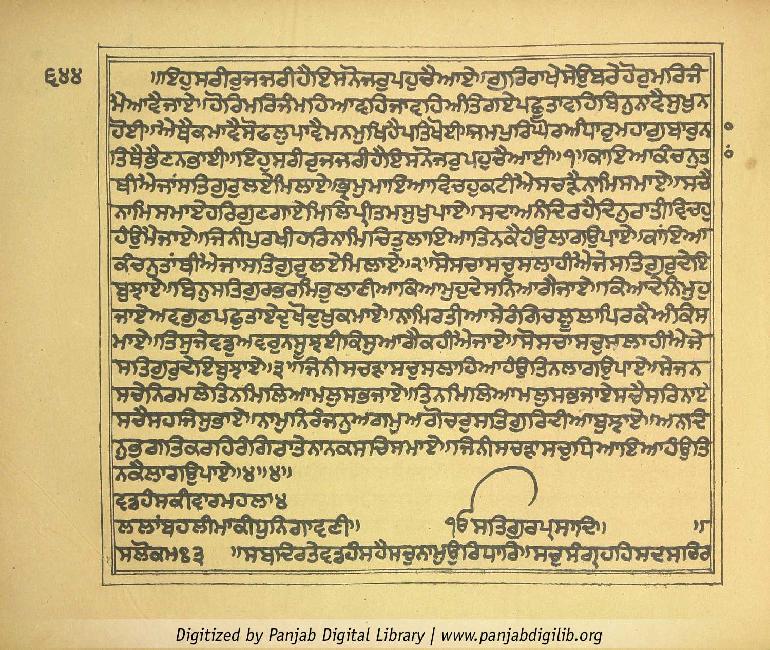 ੬੪੪
॥ਇਹੁਸਰੀਰੁਜਜਰੀਹੈਇਸਨੋਜਰੁਪਹੁਚੈਆਏ॥ਗੁਰਿਰਾਖੇਸੇਉਬਰੇਹੋਰੁਮਰਿਜੰ
ਮੈਆਵੈਜਾਏ॥ਹੋਰਿਮਰਿਜੰਮਹਿਆਵਹਿਜਾਵਹਿਅੰਤਿਗਏਪਛੁਤਾਵਹਿਬਿਨੁਨਾਵੈਸੁਖੁਨ
ਹੋਈ॥ਐਥੈਕਮਾਵੈਸੋਫਲੁਪਾਵੈਮਨਮੁਖਿਹੈਪਤਿਖੋਈ॥ਜਮਪੁਰਿਘੋਰਅੰਧਾਰੁਮਹਾਗੁਬਾਰੁਨ
ਤਿਥੈਭੈਣਨਭਾਈ॥ਇਹੁਸਰੀਰੁਜਜਰੀਹੈਇਸਨੋਜਰੁਪਹੁਚੈਆਈ॥੧॥ਕਾਇਆਕੰਚਨੁਤ
ਥੀਐਜਾਂਸਤਿਗੁਰੁਲਏਮਿਲਾਏ॥ਭ੍ਰਮੁਮਾਇਆਵਿਚਹੁਕਟੀਐਸਚੜੈਨਾਮਿਸਮਾਏ॥ਸਚੈ
ਨਾਮਿਸਮਾਏਹਰਿਗੁਣਗਾਏਮਿਲਿਪ੍ਰੀਤਮਸੁਖੁਪਾਏ॥ਸਦਾਅਨੰਦਿਰਹੈਦਿਨੁਰਾਤੀਵਿਚਹੁ
ਹੰਉਮੈਜਾਏ॥ਜਿਨੀਪੁਰਖੀਹਰਿਨਾਮਿਚਿਤੁਲਾਇਆਤਿਨਕੈਹੰਉਲਾਗਉਪਾਏ॥ਕਾਂਇਆ
ਕੰਚਨੁਤਾਂਥੀਐਜਾਸਤਿਗੁਰੁਲਏਮਿਲਾਏ॥੨॥ਸੋਸਚਾਸਚੁਸਲਾਹੀਐਜੇਸਤਿਗੁਰੁਦੇਇ
ਬੁਝਾਏ॥ਬਿਨੁਸਤਿਗੁਰਭਰਮਿਭੁਲਾਣੀਆਕਿਆਮੁਹੁਦੇਸਨਿਆਗੈਜਾਏ॥ਕਿਆਦੇਨਿਮੁਹੁ
ਜਾਏਅਵਗੁਣਪਛੁਤਾਏਦੁਖੋਦੁਖੁਕਮਾਏ॥ਨਾਮਿਰਤੀਆਸੇਰੰਗਿਚਲੂਲਾਪਿਰਕੈਅੰਕਿਸ
ਮਾਏ॥ਤਿਸੁਜੇਵਡੁਅਵਰੁਨਸੂਝਈਕਿਸੁਆਗੈਕਹੀਐਜਾਏ॥ਸੋਸਚਾਸਚੁਸਲਾਹੀਐਜੇ
ਸਤਿਗੁਰੁਦੇਇਬੁਝਾਏ॥੩॥ਜਿੰਨੀਸਚੜਾਸਚੁਸਲਾਹਿਆਹੰਉਤਿਨਲਾਗਉਪਾਏ॥ਸੇਜਨ
ਸਚੇਨਿਰਮਲੇਤਿਨਮਿਲਿਆਮਲੁਸਭਜਾਏ॥ਤਿਨਮਿਲਿਆਮਲੁਸਭਜਾਏਸਚੈਸਰਿਨਾਏ
ਸਚੈਸਹਜਿਸੁਭਾਏ॥ਨਾਮੁਨਿਰੰਜਨੁਅਗਮੁਅਗੋਚਰੁਸਤਿਗੁਰਿਦੀਆਬੁਝਾਏ॥ਅਨਦਿ
ਨੁਭਗਤਿਕਰਹਿਰੰਗਿਰਾਤੇਨਾਨਕਸਚਿਸਮਾਏ॥ਜਿਨੀਸਚੜਾਸਚੁਧਿਆਇਆਹੰਉਤਿ
ਨਕੈਲਾਗਉਪਾਏ॥੪॥੪॥
ਵਡਹੰਸਕੀਵਾਰਮਹਲਾ੪
ਲਲਾਂਬਹਲੀਮਾਕੀਧੁਨਿਗਾਵਣੀ॥ ੴਸਤਿਗੁਰਪ੍ਰਸਾਦਿ॥
ਸਲੋਕਮਃ੩ ॥ਸਬਦਿਰਤੇਵਡਹੰਸਹੈਸਚੁਨਾਮੁਉਰਿਧਾਰਿ॥ਸਚੁਸੰਗ੍ਰਹਹਿਸਦਸਚਿਰ
Digitized by Panjab Digital Library | www.panjabdigilib.org